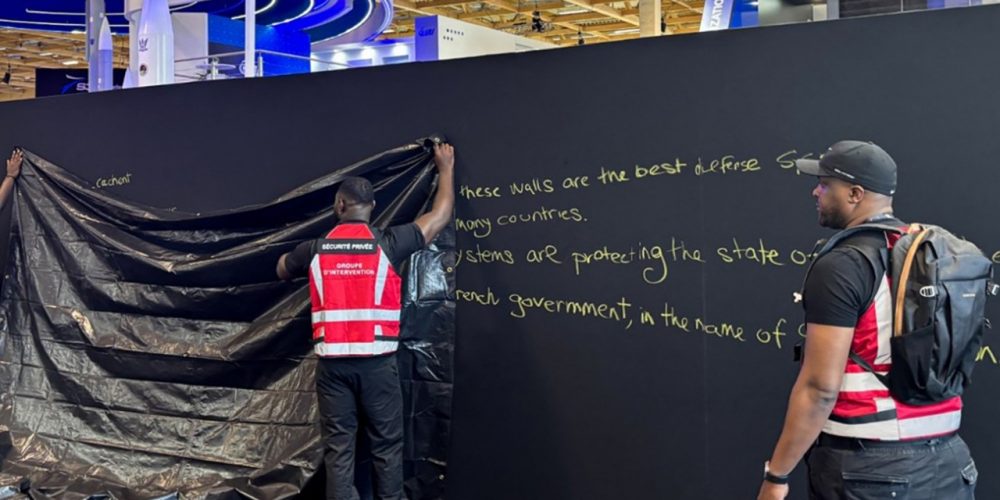 cachent
these walls are the best defense
many countries.
ystems are protecting the state
rench government, in the name of
SÉCURITÉ PRIVÉE
GROUPE
D'INTERVENTION